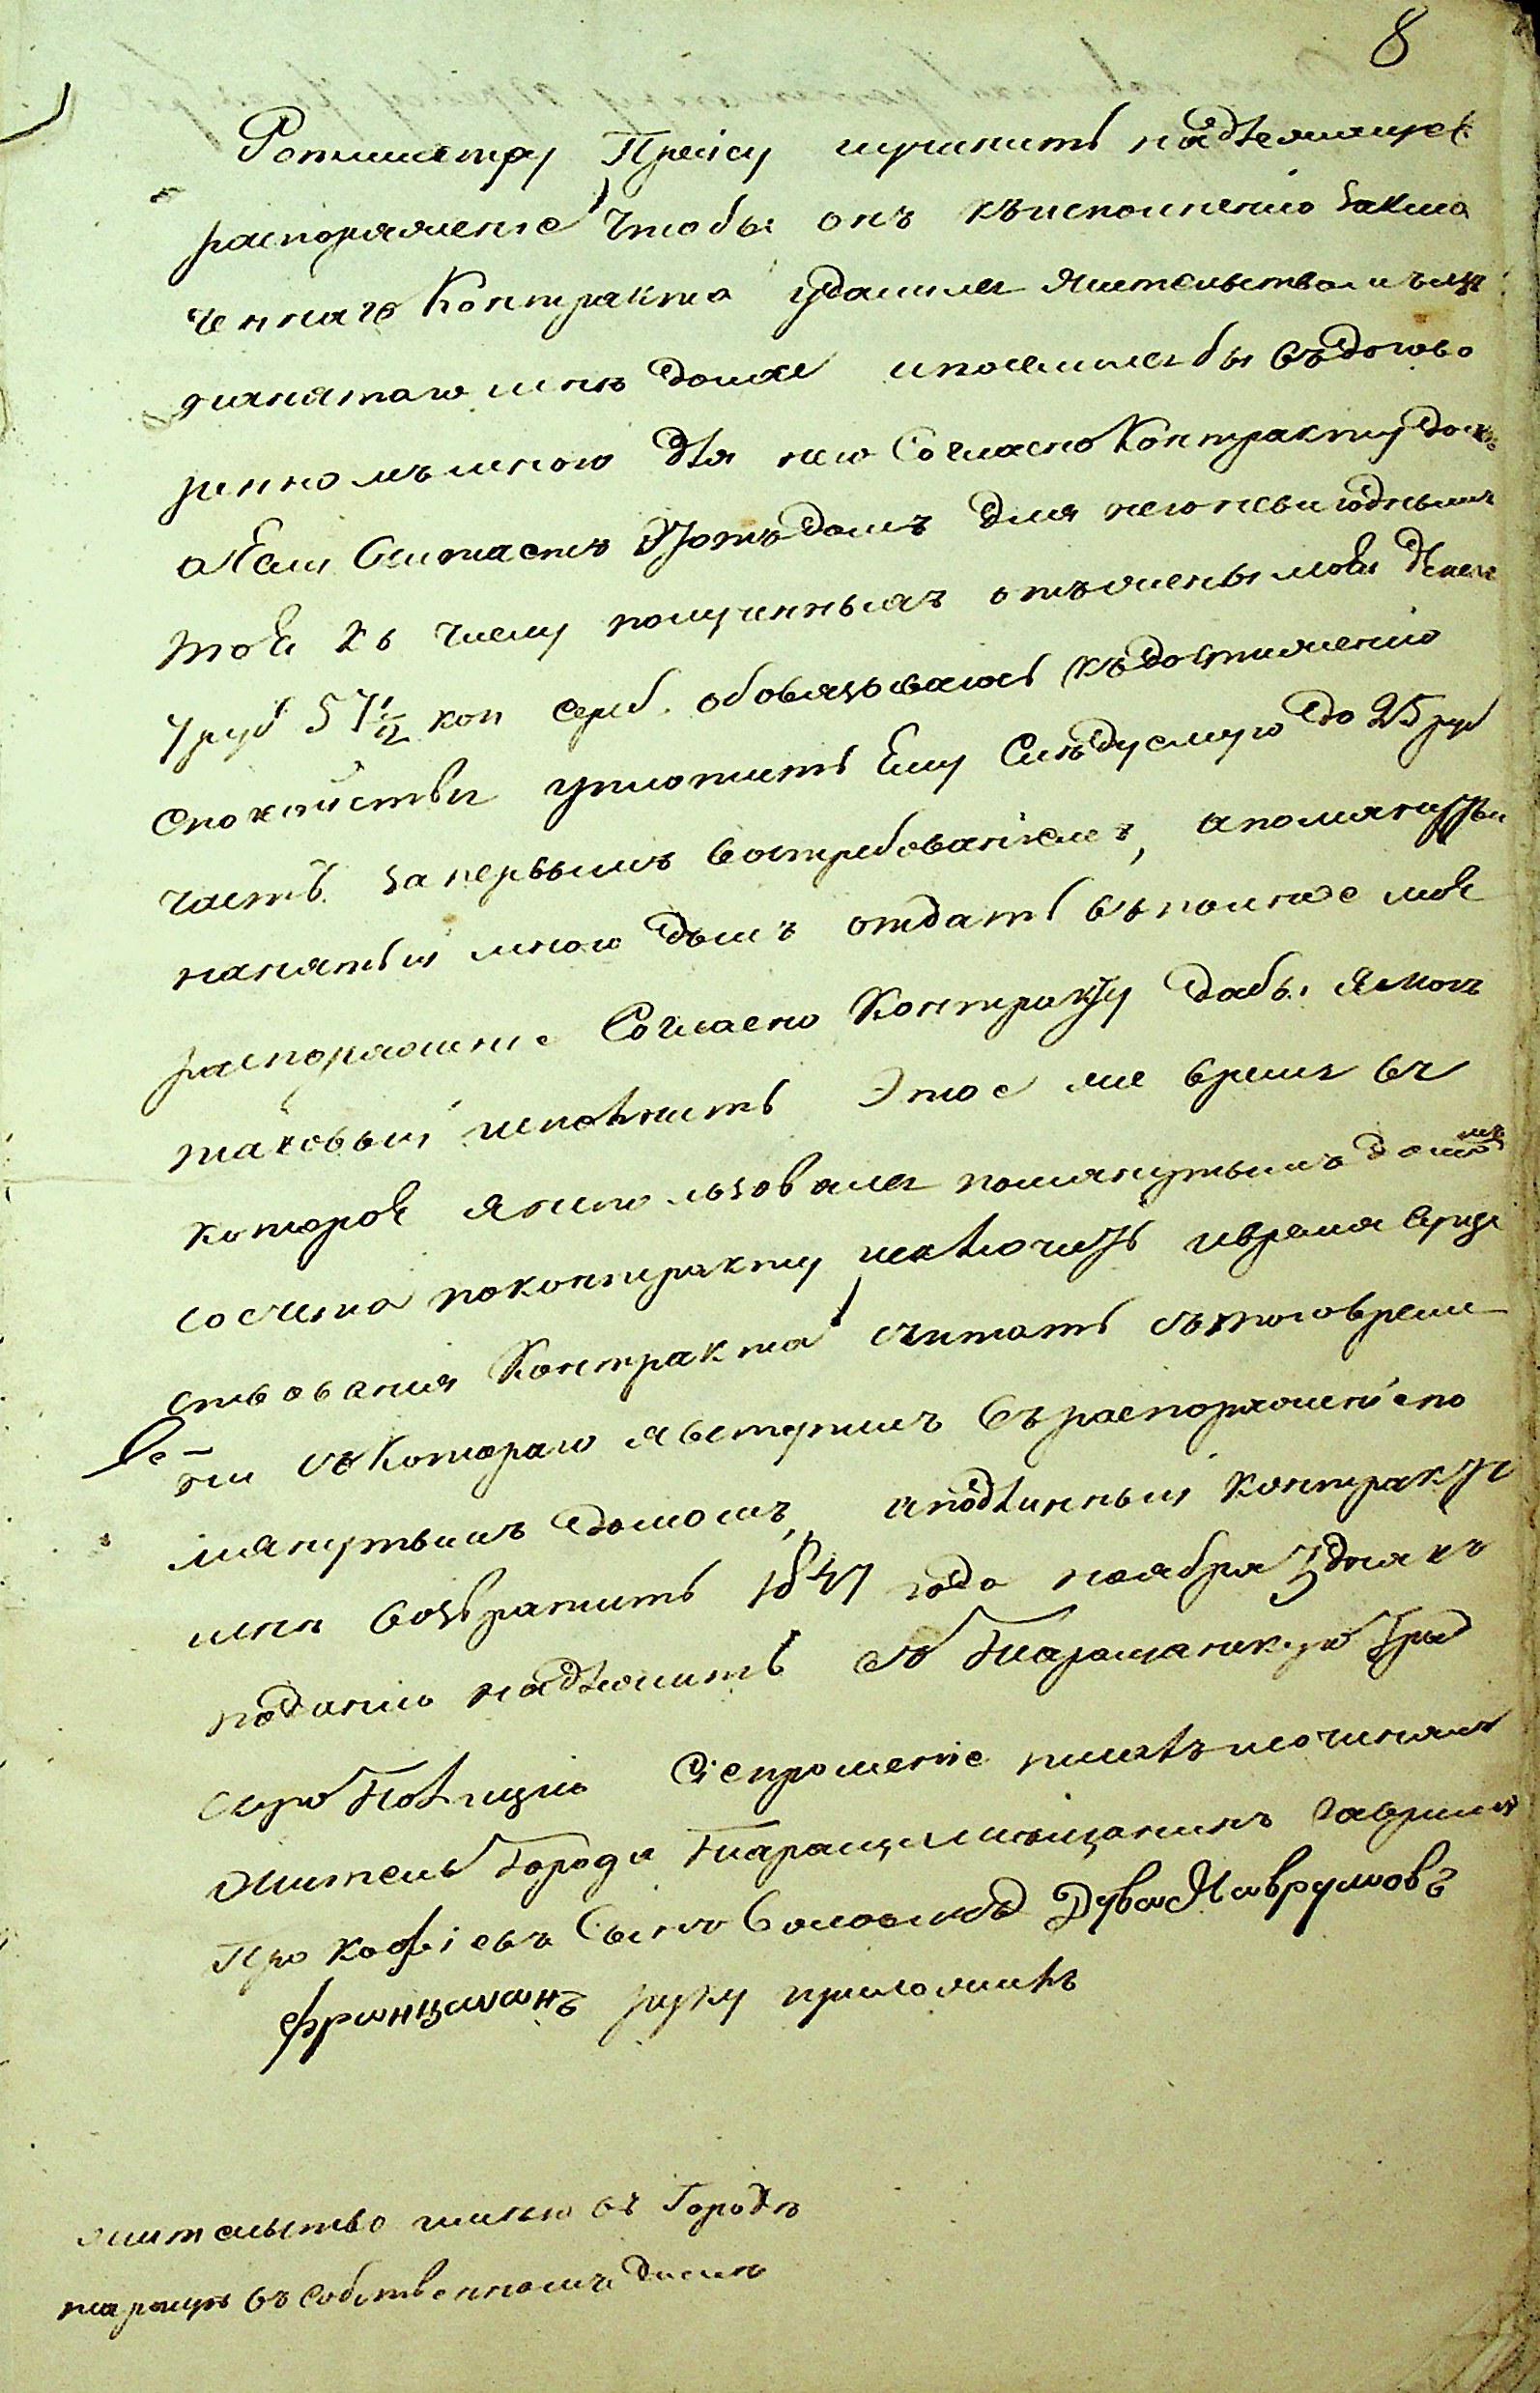 8
Ротмистру Прейсу учинить надлежащее
распоряжение чтобы онъ къисполнению Заклю
ченнаго Контракта удалился жительствомъ изъ
занятаго имъ дома и поселился бы въ догово
ренномъ мною для него Согласно Контракту доме
а Если Считаетъ Этотъ домъ для него невыгоднымъ
то Я къ числу полученныхъ отъ жены моей денегъ
7 руб 57 1/2 коп сереб. обовязываюсь къ достижению
спокойствия уплотить Ему Следуемую до 25 руб
часть за первымъ востребованиемъ, а помянутый
нанятый мною домъ отдать въ полное мое
распоряжение Согласно Контракту дабы я могъ
таковый исполнить Этое же время въ
которое я неползовался помянутымъ домомъ
со счета по контракту исключить и время суще
ствования Контракта считать съ того време
ни съ Котораго я вступилъ въ распоряжение по
мянутымъ домомъ, а подлинный контрактъ
мне возвратить 1847 года ноября 3 дня къ
поданию надлежитъ въ Таращанскую Град
скую Полицию Сие прошение писалъ и сочинялъ
житель Города Таращи мещанинъ Гаврило
Прокофиевъ Сынъ Дува Мавруновъ
Францманъ руку приложилъ
жительство имею въ Городе
тараще въ собственномъ доме